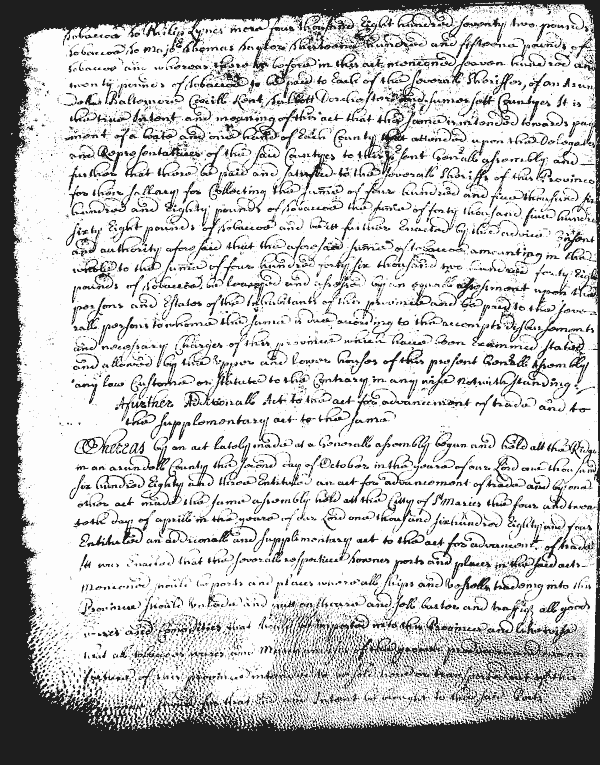 Tobaccoe to Philip Lynes more four thousand Eight hundred seventy two pounds
tobaccoe to Majr Thomas hundred and fifteene pounds of
tobaccoe and whereas there is before in this act menconed seaven hundred and
twenty pounds of tobaccoe to be paid to Each of the severall Sheriffes, of Ann Arun
dell Baltemore Cecill Kent, Talbott Dorchester and Sumersett Countyes It is
the true Intent and meaning of this act that the same is intended towards pay
ment of a boate and one hand of Each County that attended upon the Delegates
and Representatives of the said Countyes to this psent Generall assembly and
further that there be paid and satisfied to the severall Sheriffs of this Province
for their sallary for Collecting the sume of four hundred and five thousand six
hundred and Eighty pounds of tobaccoe the sume of forty thousand five hundred
sixty Eight pounds of tobaccoe and be itt further Enacted by the advice Consent
and authority aforesaid that the aforesaid sumes of tobaccoe amounting in the
whole to the sume of four hundred forty six thousand two hundred forty Eight
pounds of tobaccoe be leavyed and by an equall assessment upon the
persons and Estates of the Inhabitants of this province and be paid to the seve
rall persons to whome the same is due according to the accompts disbursements
and necessary Charges of this province which have been Examined stated
and allowed by the Upper and lower houses of this present Generall Assembly
any law Custome or Statute to the Contrary in any wise notwithstanding
A further Additionall Act to the act for advancement of trade and to
the supplementary act to the same
Whereas by an act lately made at a Generall assembly begun and held att the Ridge
in ann arundell County the second day of October in the yeare of our Lord one thousand
six hundred Eighty and three Entituled an act for advancement of trade and by one
other act made the same assembly held att the Citty of St Maries the four and twen
tieth day of aprill in the yeare of our Lord one thousand six hundred Eighty and four
Entituled an additionall and supplementary act to the act for advancemt of trade
It was Enacted that the severall respective townes ports and places in the said acts
Menconed should be ports and places where all ships and vessells tradeing into this
Province should unlade and putt on shoare and sell barter and traffiq all goods
wares and Comodities that should be imported into this Province and likewise
that all tobaccoes wares and Merchandizes of the growth production and manu
facture of this province intended to be sold
should for that End and Intent be brought to the said ports